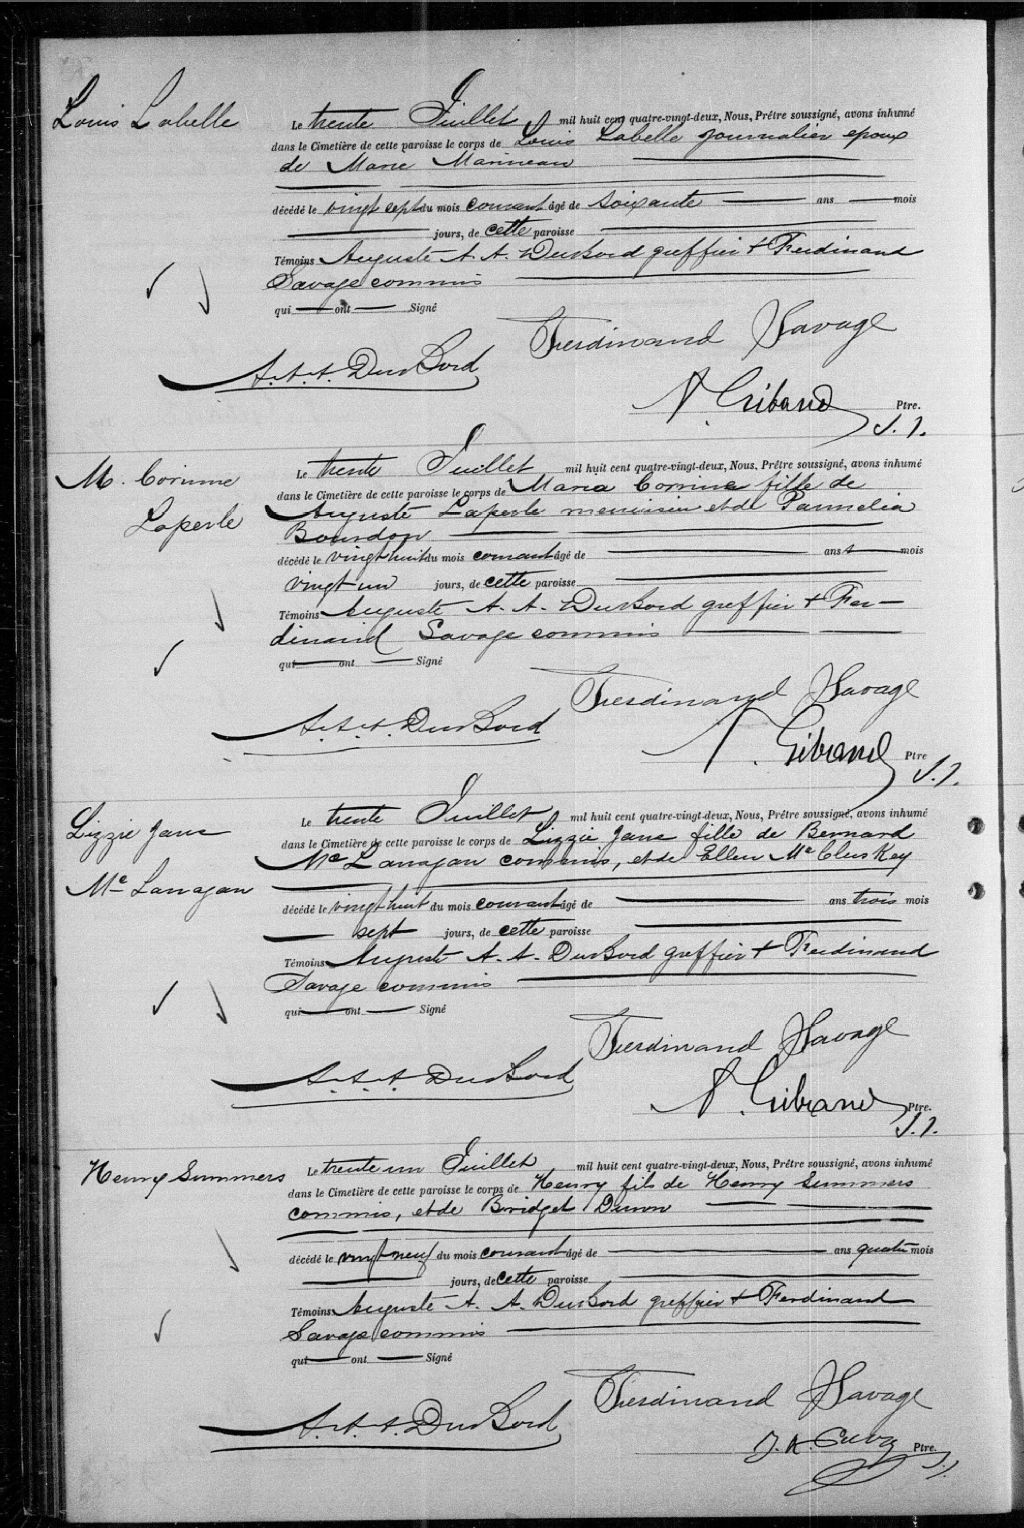 Louis Labelle
Le trente Juillet mil huit cent quatre-vingt-deux, Nous, Prêtre soussigné, avons inhumé
dans le Cimetière de cette paroisse le corps de Louis Labelle journalier epoux
de Marie Marineau
décédé le vingt sept du mois courant âgé de soixante ans mois
jours, de cette paroisse
Témoins Auguste A. A. DuBord greffier + Ferdinand
Savage commis
qui ont Signé
Ferdinand Savage
A. A. A. DuBord
Ptre.
S. J.
M. Corinne
Laperle
Le trente Juillet mil huit cent quatre-vingt-deux, Nous, Prêtre soussigné, avons inhumé
dans le Cimetière de cette paroisse le corps de Maria Corinne fille de
Auguste Laperle menuisier et de Parmelia
Bourdon
décédé le vingt huit du mois courant âgé de ans mois
vingt un jours, de cette paroisse
Témoins Auguste A. A. DuBord greffier + Fer-
dinand Savage commis
qui ont Signé
Ferdinand Savage
A. A. A. DuBord
Ptre
S. J.
Lizzie Jane
Mc Lanagan
Le trente Juillet mil huit cent quatre-vingt-deux, Nous, Prêtre soussigné, avons inhumé
dans le Cimetière de cette paroisse le corps de Lizzie Jane fille de Bernard
Mc Lanagan commis, et de Ellen Mc Cluskey
décédé le vingt huit du mois courant âgé de ans trois mois
sept jours, de cette paroisse
Témoins Auguste A. A. DuBord greffier + Ferdinand
Savage commis
qui ont Signé
Ferdinand Savage
A. A. A. DuBord
Ptre.
S. J.
Henry Summers
Le trente un Juillet mil huit cent quatre-vingt-deux, Nous, Prêtre soussigné, avons inhumé
dans le Cimetière de cette paroisse le corps de Henry fils de Henry Summers
commis, et de Bridget Dunn
décédé le vingt neuf du mois courant âgé de ans quatre mois
jours, de cette paroisse
Témoins Auguste A. A. DuBord greffier + Ferdinand
Savage commis
qui ont Signé
Ferdinand Savage
A. A. A. DuBord
Ptre.